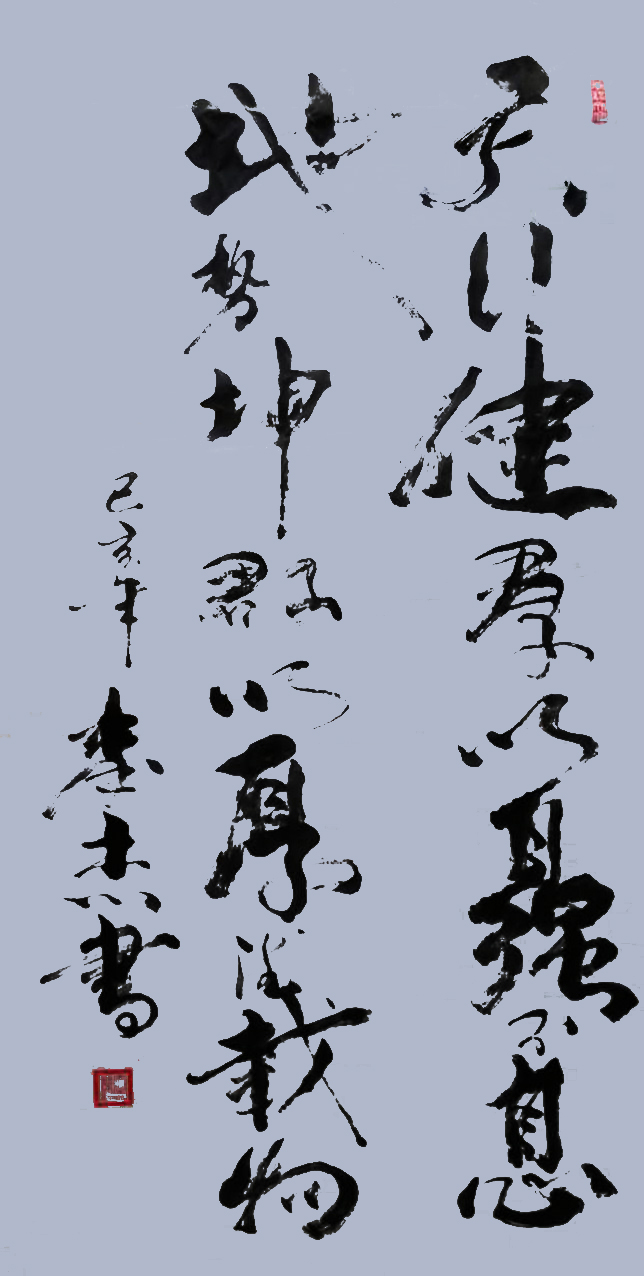 天行健君子以自强不息
地势坤君子以厚德載物
己亥年 書